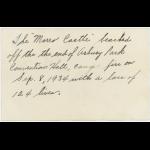 The "Morro Castle" beached
off the the end of Asbury Park
Convention Hall, caught fire on
Sep. 8, 1934 with a loss of
124 lives.